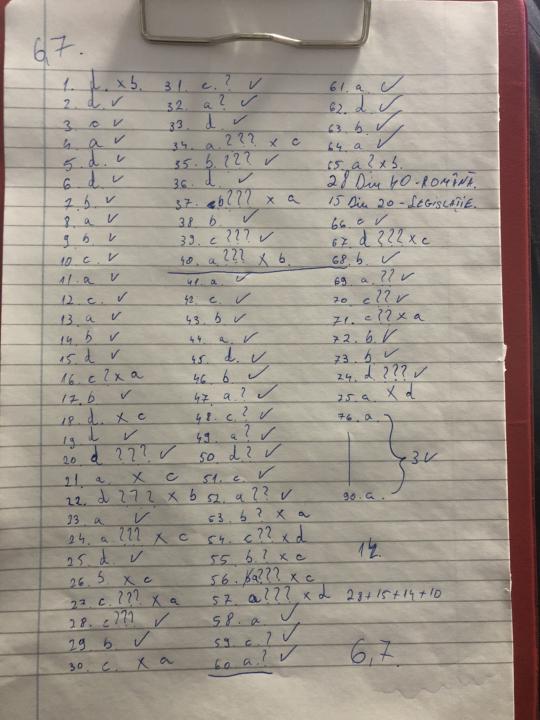 6,7.
1. d. x b.
2. d ✓
3. c ✓
4. a ✓
5. d. ✓
6. d ✓
7. b ✓
8. a ✓
9. b ✓
10. c ✓
11. a ✓
12. c. ✓
13. a ✓
14. b ✓
15. d ✓
16. c? x a
17. b ✓
18. d. x c
19. d ✓
20. d ??? ✓
21. a. x c
22. d ??? x b
23. a ✓
24. a ??? x c
25. d ✓
26. b x c
27. c. ??? x a
28. c??? ✓
29. b ✓
30. c. x a
31. c. ? ✓
32. a? ✓
33. d. ✓
34. a. ??? x c
35. b. ??? ✓
36. d. ✓
37. b??? x a
38. b ✓
39. c??? ✓
40. a??? x b.
41. a. ✓
42. c. ✓
43. b ✓
44. a. ✓
45. d. ✓
46. b ✓
47. a.? ✓
48. c.? ✓
49. a.? ✓
50. d.? ✓
51. c. ✓
52. a?? ✓
53. b? x a
54. c?? x d
55. b.? x c
56. a??? x c
57. a??? x d
58. a ✓
59. c.? ✓
60. a.? ✓
61. a. ✓
62. d. ✓
63. b. ✓
64. a ✓
65. a? x b.
28 Din 40-ROMÂNĂ.
15 Din 20-LEGISLAȚIE.
66. c ✓
67. d ??? x c
68. b. ✓
69. a.?? ✓
70. c?? ✓
71. c?? x a
72. b. ✓
73. b ✓
74. d.??? ✓
75. a. x d
76. a.
3 ✓
90. a.
14.
28+15+14+10
6,7.